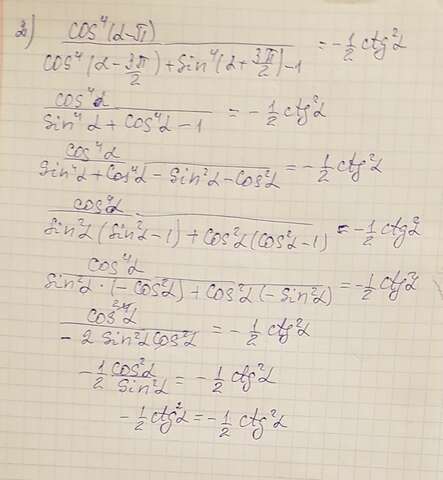 2) cos⁴(α-π) / (cos⁴(α-3π/2)+sin⁴(α+3π/2)-1) = -1/2 ctg²α
cos⁴α / (sin⁴α + cos⁴α - 1) = -1/2 ctg²α
cos⁴α / (sin⁴α + cos⁴α - sin²α - cos²α) = -1/2 ctg²α
cos⁴α / (sin²α (sin²α-1) + cos²α (cos²α-1)) = -1/2 ctg²α
cos⁴α / (sin²α · (-cos²α) + cos²α (-sin²α)) = -1/2 ctg²α
cos⁴α / (-2 sin²α cos²α) = -1/2 ctg²α
-1/2 cos²α / sin²α = -1/2 ctg²α
-1/2 ctg²α = -1/2 ctg²α